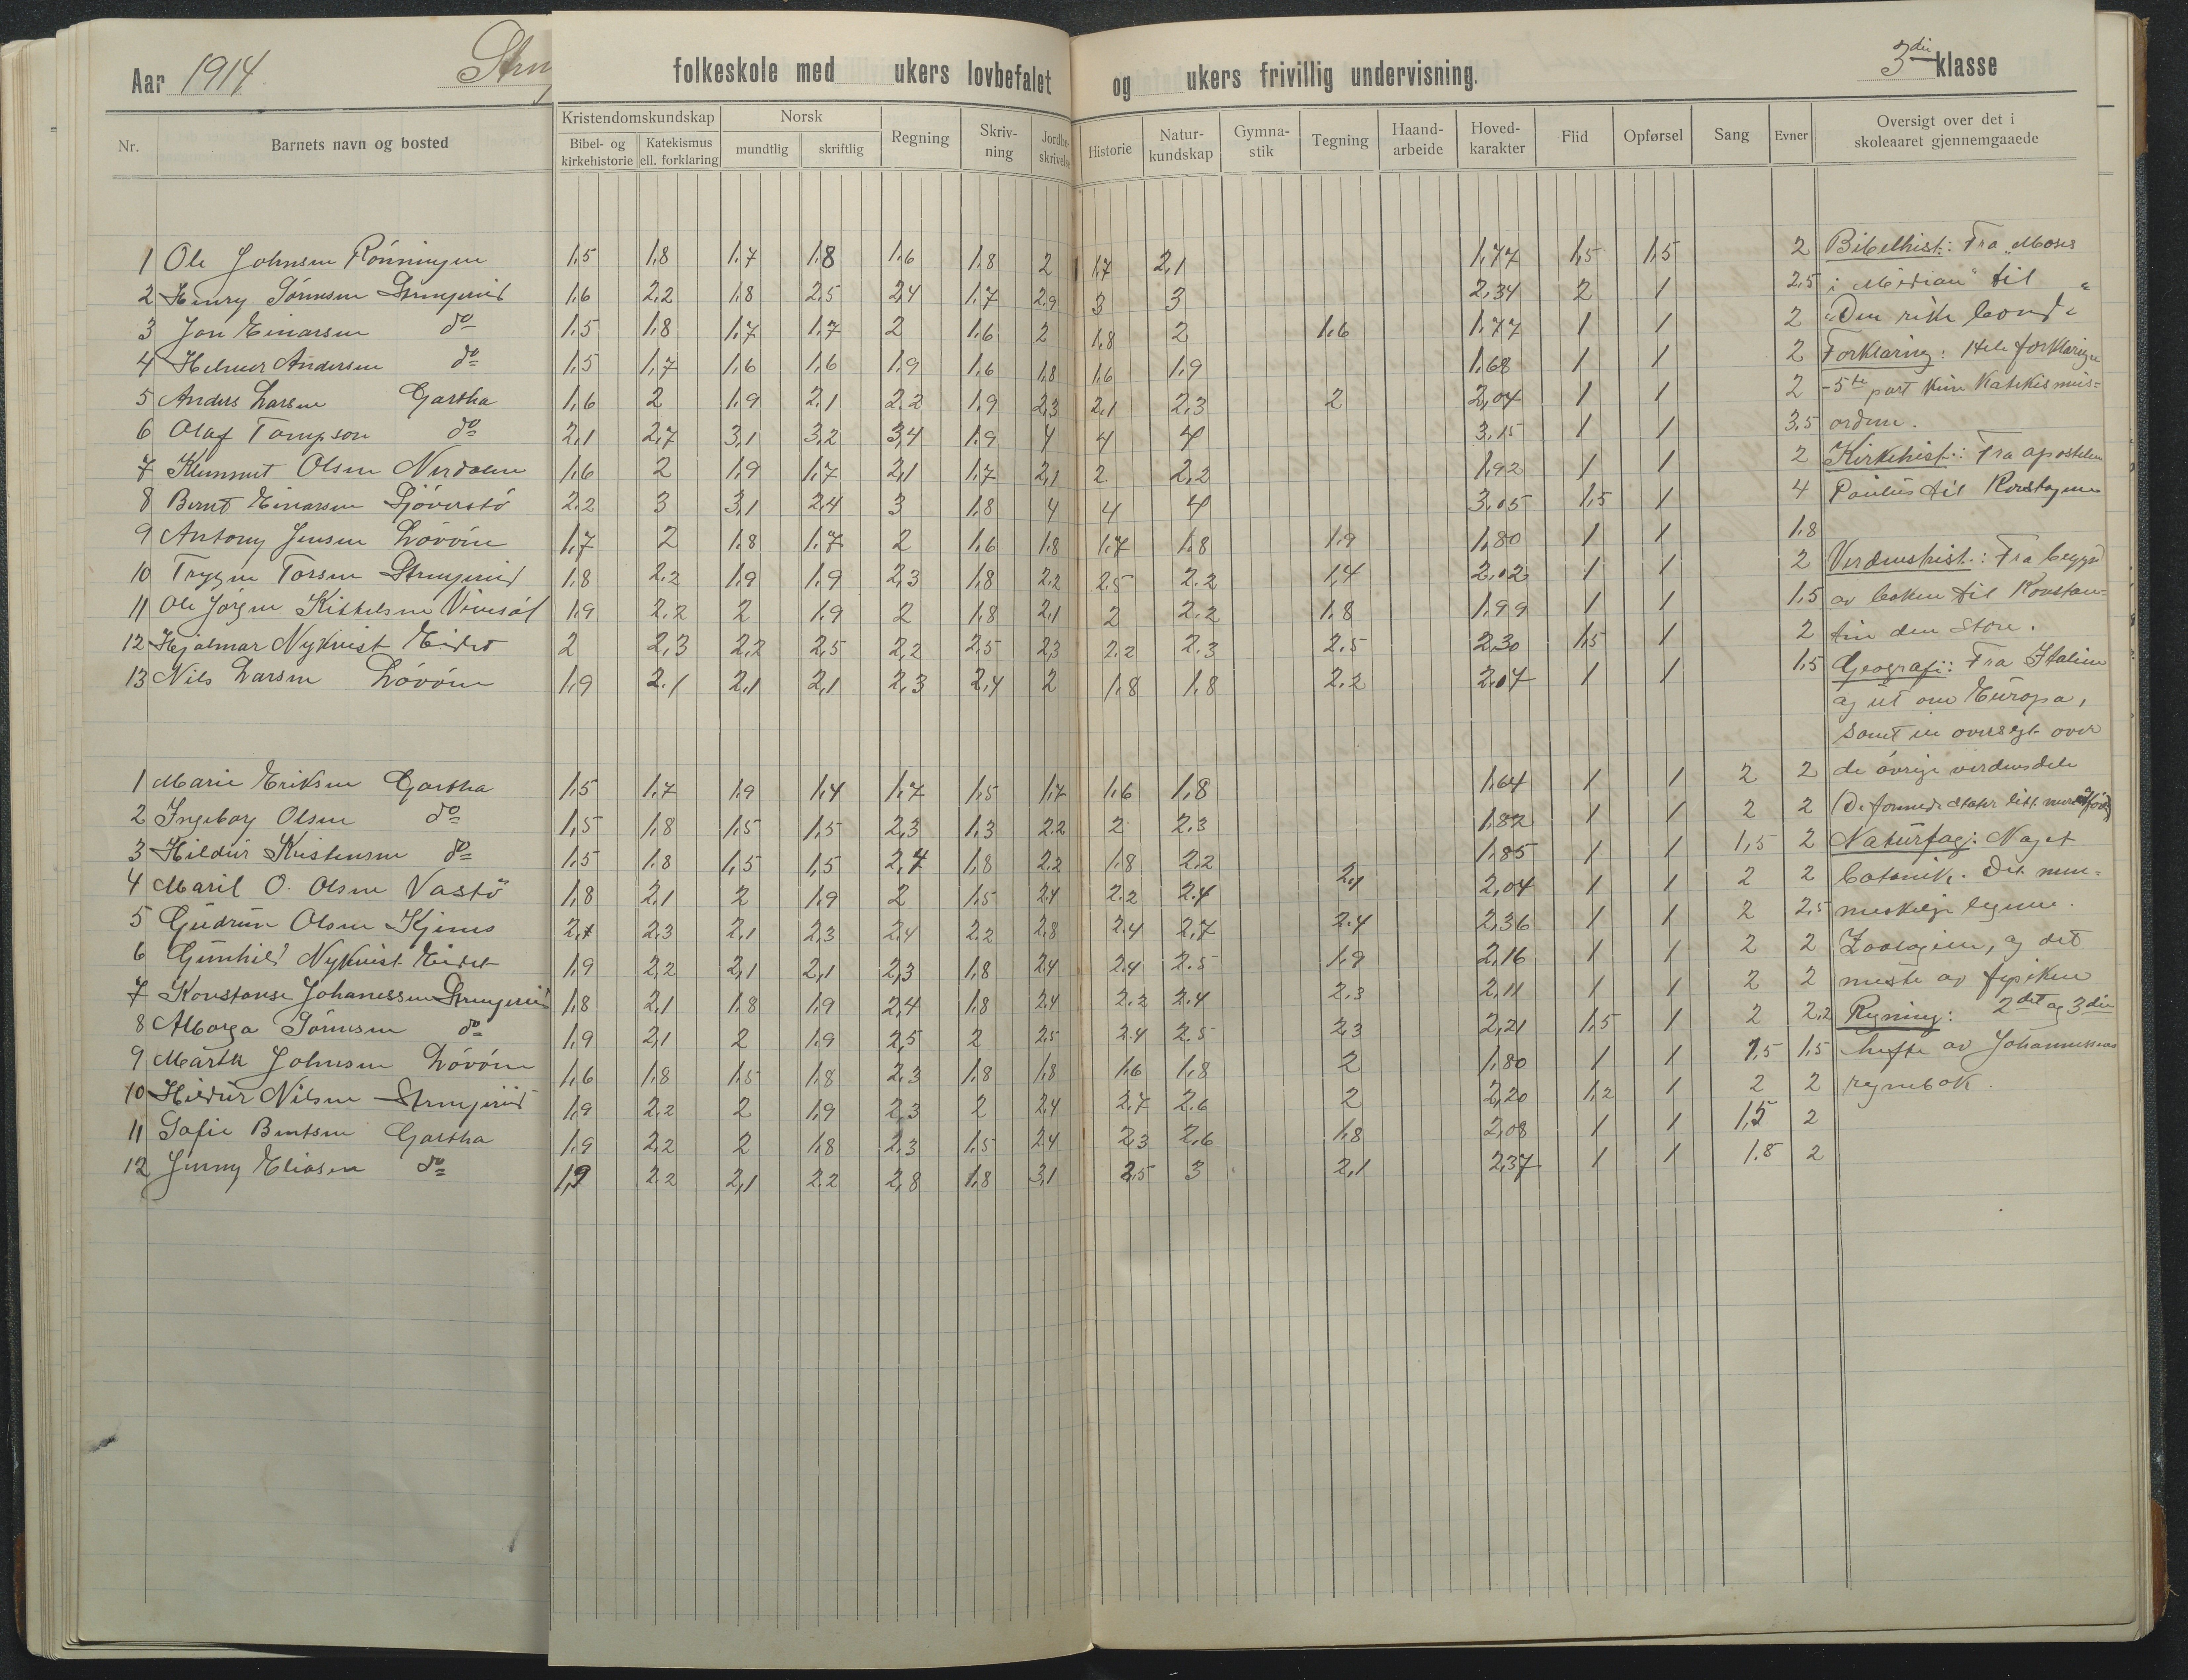 Aar 1914
folkeskole med ukers lovbefalet og ukers frivillig undervisning. 3die klasse
Nr. Barnets navn og bosted Kristendomskundskap Bibel- og kirkehistorie Katekismus ell. forklaring Norsk mundtlig skriftlig Regning Skriv-ning Jordbe-skrivelse Historie Natur-kundskap Gymna-stik Tegning Haand-arbeide Hoved-karakter Flid Opførsel Sang Evner Oversigt over det i skoleaaret gjennemgaaede
1 Ole Johnsen Rønningen 1,5 1,8 1,7 1,8 1,6 1,8 2 1,7 2,1 1,77 1,5 1,5 2 Bibelhist.: Fra "Moses
2 Henry Tønnesen 1,6 2,2 1,8 2,5 2,4 1,7 2,9 3 3 2,34 2 1 2,5 i Midian" til "
3 Jon Einarsen do 1,5 1,8 1,7 1,7 2 1,6 2 1,8 2 1,6 1,77 1 1 2 "Den rike bonde
4 Helmer Andersen do 1,5 1,7 1,6 1,6 1,9 1,6 1,8 1,6 1,9 1,68 1 1 2 Forklaring: Hele forklaringen
5 Anders Larsen Gartha 1,6 2 1,9 2,1 2,2 1,9 2,3 2,1 2,3 2 2,04 1 1 2 - 5te part kun Katekismus-
6 Olaf Tompson do 2,1 2,7 3,1 3,2 3,4 1,9 4 4 4 3,15 1 1 3,5 ordene.
7 Klemmet Olsen Nerdalen 1,6 2 1,9 1,7 2,1 1,7 2,1 2 2,2 1,92 1 1 2 Kirkehist.: Fra apostelen
8 Bernt Einarsen 2,2 3 3,1 2,4 3 1,8 4 4 4 3,05 1,5 1 4 Paulus til Korstogene
9 Antony Jensen Løvøen 1,7 2 1,8 1,7 2 1,6 1,8 1,7 1,8 1,9 1,80 1 1 1,8
10 Trygve Torsen 1,8 2,2 1,9 1,9 2,3 1,8 2,2 2,5 2,2 1,4 2,02 1 1 2 Verdenshist.: Fra begynd
11 Ole Jørgen Kittelsen 1,9 2,2 2 1,9 2 1,8 2,1 2 2,2 1,8 1,99 1 1 1,5 av boken til Konstan-
12 Hjalmar Nykvist Eidet 2 2,3 2,2 2,5 2,2 2,5 2,3 2,2 2,3 2,5 2,30 1,5 1 2 tin den Store.
13 Nils Larsen Løvøen 1,9 2,1 2,1 2,1 2,3 2,4 2 1,8 1,8 2,2 2,04 1 1 1,5 Geografi: Fra Italien
og ut om Europa,
samt en oversigt over
1 Marie Eriksen Gartha 1,5 1,7 1,9 1,4 1,7 1,5 1,7 1,6 1,8 1,64 1 1 2 2 de øvrige verdensdele
2 Ingeborg Olsen do 1,5 1,8 1,5 1,5 2,3 1,3 2,2 2 2,3 1,82 1 1 2 2 (De forenede stater litt mere
3 Hildur Kristensen do 1,5 1,8 1,5 1,5 2,4 1,8 2,2 1,8 2,2 1,85 1 1 1,5 2 Naturfag: Noget
4 Maril O. Olsen Vastø 1,8 2,1 2 1,9 2 1,5 2,4 2,2 2,4 2,1 2,04 1 1 2 2 botanik. Det men-
5 Gudrun Olsen 2,4 2,3 2,1 2,3 2,4 2,2 2,8 2,4 2,7 2,4 2,36 1 1 2 2,5 neskelige legeme.
6 Gunhild Nykvist Eidet 1,9 2,2 2,1 2,1 2,3 1,8 2,4 2,4 2,5 1,9 2,16 1 1 2 2 Zoologien, og det
7 Konstanse Johanessen 1,8 2,1 1,8 1,9 2,4 1,8 2,4 2,2 2,4 2,3 2,11 1 1 2 2 meste av fysiken
8 Alborga Tønnesen do 1,9 2,1 2 1,9 2,5 2 2,5 2,4 2,5 2,3 2,21 1,5 1 2 2,2 Regning: 2det og 3die
9 Marta Johnsen Løvøen 1,6 1,8 1,5 1,8 2,3 1,8 1,8 1,6 1,8 2 1,80 1 1 1,5 1,5 hefte av Johannessens
10 Hildur Nilsen 1,9 2,2 2 1,9 2,3 2 2,4 2,7 2,6 2 2,20 1,2 1 2 2 regnebok.
11 Sofie Berntsen Gartha 1,9 2,2 2 1,8 2,3 1,5 2,4 2,3 2,6 1,8 2,08 1 1 1,5 2
12 Jenny Eliasen do 1,9 2,2 2,1 2,2 2,8 1,8 3,1 2,5 3 2,1 2,37 1 1 1,8 2